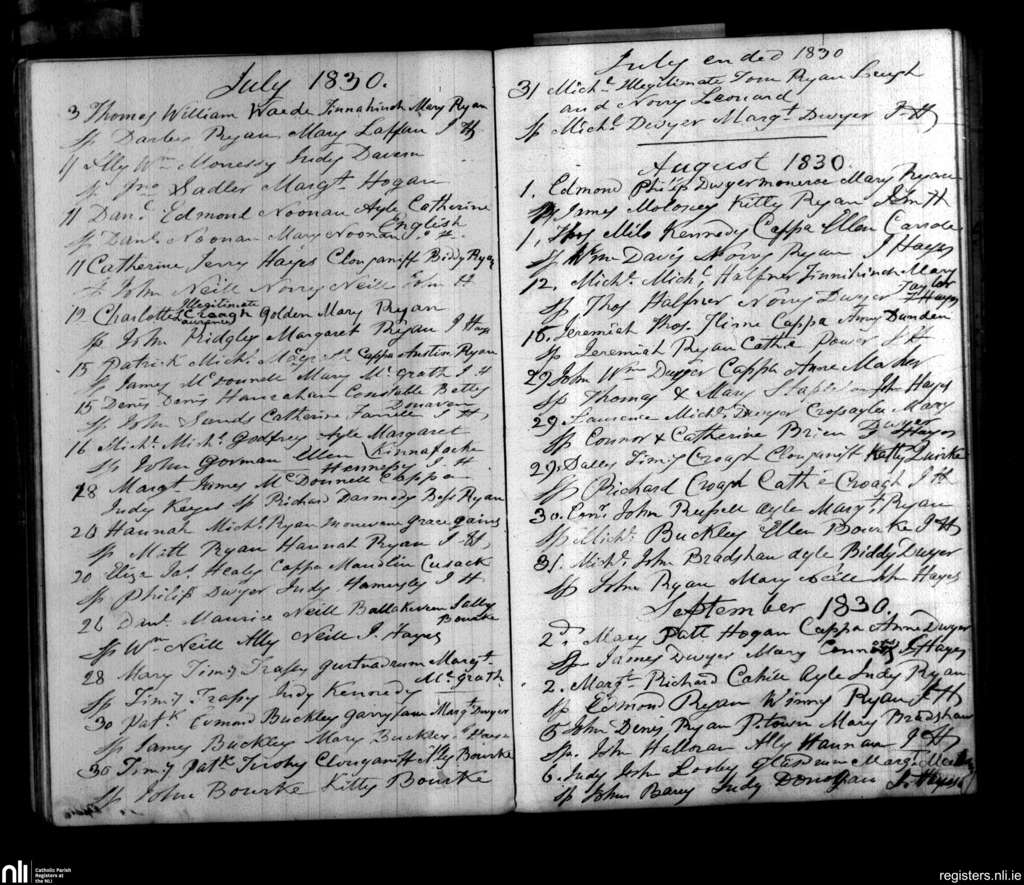 July 1830.
3 Thomas William Waede Finnahinch Mary Ryan
Sp Darbie Ryan Mary Laffan J H
11 Ally Wm Judy Davern
Sp Jno Sadler Margt. Hogan
11 Danl. Edmond Noonan Ayle Catherine
English
Sp Danl. Noonan Mary Noonan J H
11 Catherine Jerry Hayes Clonganiff Biddy Ryan
Sp John Neill Norry Neill John H
Illegitimate
12 Charlotte Laurence Croagh Golden Mary Ryan
Sp John Ridgley Margaret Ryan J Hays
15 Patrick Michl. Cappa Austin Ryan
Sp James McDonnell Mary McGrath J H
15 Denis Denis Hanrahan Constable Betty
Sp John Sands Catherine J H
16 Michl. Michl. Godfrey Ayle Margaret
Kinnafacke
Sp John Gorman Ellen Hennesy J H
18 Margt. James McDonnell Cappa
Judy Keyes Sp Richard Darmody Bess Ryan
20 Hannah Michl. Ryan Grace
Sp Matt Ryan Hannah Ryan J H
20 Eliza Jas. Healy Cappa Maudlin Cusack
Sp Philip Dwyer Judy J H
26 Danl. Maurice Neill Sally
Bourke
Sp Wm Neill Ally Neill J. Hayes
28 Mary Timy Trasey Gurtnadrum Margt.
McGrath
Sp Timy Trasey Judy Kennedy
30 Patk Edmond Buckley Garryfane Margt Dwyer
Sp James Buckley Mary Buckley J Hays
30 Timy Patk Clonganiff Ally Bourke
Sp John Bourke Kitty Bourke
July ended 1830
31 Michl. Illegitimate Tom Ryan
and Norry Leonard
Sp Michl. Dwyer Margt. Dwyer J H
August 1830.
1. Edmond Philip Dwyer Moneree Mary Ryan
Sp James Moloney Kitty Ryan John H
1. Thos Milo Kennedy Cappa Ellen
Sp Wm Davis Norry Ryan J Hayes
12. Michl. Michl. Halfner Finnahinch Mary
Taylor
Sp Thos Halfner Norry Dwyer J Hays
16. Jeremiah Thos. Cappa Amy
Sp Jeremiah Ryan Cathe Power J H
29 John Wm Dwyer Cappa Anne Maher
Sp Thomas & Mary John Hayes
29 Laurence Michl. Dwyer Mary
Dwyer
Sp Connor & Catherine Brien J Hayes
29. Timy Croagh Clonganiff Katty Quirke
Sp Richard Croagh Cathe Croagh J H
30. John Russell Ayle Margt. Ryan
Sp Michl. Buckley Ellen Bourke J H
31. Michl. John Bradshaw Ayle Biddy Dwyer
Sp John Ryan Mary Neill John Hayes
September 1830.
2d. Mary Patt Hogan Cappa Anne Dwyer
Sp James Dwyer Mary J Hayes
2. Margt. Richard Cahill Ayle Judy Ryan
Sp Edmond Ryan Winny Ryan J H
5 John Denis Ryan P.town Mary Bradshaw
Sp. John Halloran Ally Hannan J H
6. Judy John Margt.
Sp John Barry Judy Donogan J. Hayes
nli
Catholic Parish
Registers at
the NLI
registers.nli.ie